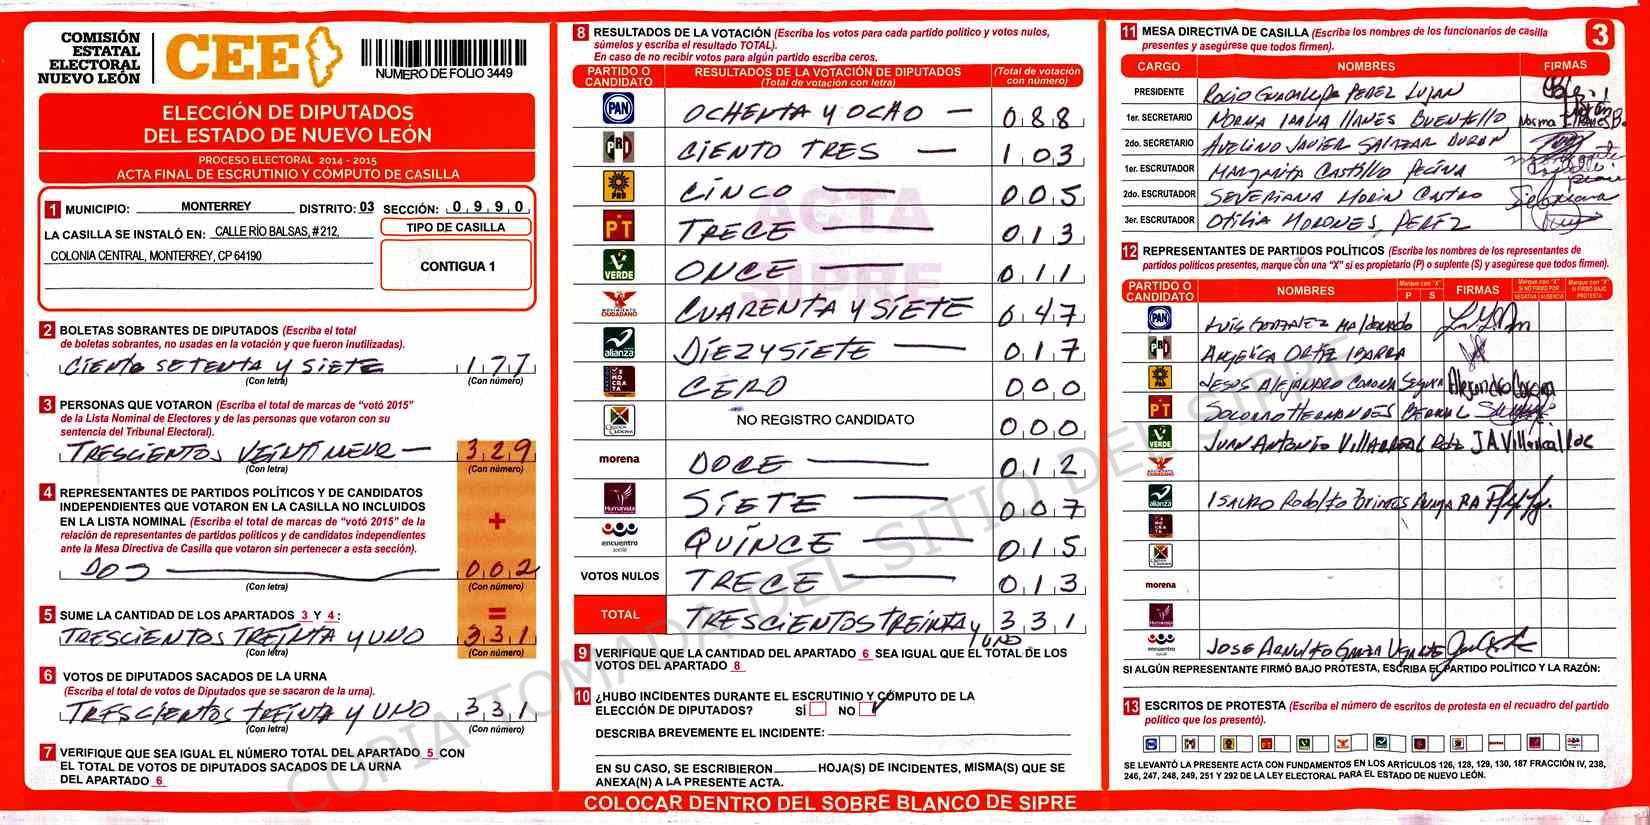 COMISIÓN
ESTATAL
ELECTORAL
NUEVO LEÓN
CEE
NUMERO DE FOLIO 3449
ELECCIÓN DE DIPUTADOS
DEL ESTADO DE NUEVO LEÓN
PROCESO ELECTORAL 2014 - 2015
ACTA FINAL DE ESCRUTINIO Y CÓMPUTO DE CASILLA
1 MUNICIPIO: MONTERREY DISTRITO: 03 SECCIÓN: 0990
LA CASILLA SE INSTALÓ EN: CALLE RÍO BALSAS, # 212,
COLONIA CENTRAL, MONTERREY, CP 64190
TIPO DE CASILLA
CONTIGUA 1
2 BOLETAS SOBRANTES DE DIPUTADOS (Escriba el total
de boletas sobrantes, no usadas en la votación y que fueron inutilizadas).
CIENTO SETENTA Y SIETE 177
(Con letra) (Con número)
3 PERSONAS QUE VOTARON (Escriba el total de marcas de “votó 2015”
de la Lista Nominal de Electores y de las personas que votaron con su
sentencia del Tribunal Electoral).
TRESCIENTOS VEINTINUEVE 329
(Con letra) (Con número)
4 REPRESENTANTES DE PARTIDOS POLÍTICOS Y DE CANDIDATOS
INDEPENDIENTES QUE VOTARON EN LA CASILLA NO INCLUIDOS
EN LA LISTA NOMINAL (Escriba el total de marcas de “votó 2015” de la
relación de representantes de partidos políticos y de candidatos independientes
ante la Mesa Directiva de Casilla que votaron sin pertenecer a esta sección).
+
DOS 002
(Con letra) (Con número)
=
5 SUME LA CANTIDAD DE LOS APARTADOS 3 Y 4:
TRESCIENTOS TREINTA Y UNO 331
(Con letra) (Con número)
6 VOTOS DE DIPUTADOS SACADOS DE LA URNA
(Escriba el total de votos de Diputados que se sacaron de la urna).
TRESCIENTOS TREINTA Y UNO 331
(Con letra) (Con número)
7 VERIFIQUE QUE SEA IGUAL EL NÚMERO TOTAL DEL APARTADO 5 CON
EL TOTAL DE VOTOS DE DIPUTADOS SACADOS DE LA URNA
DEL APARTADO 6
8 RESULTADOS DE LA VOTACIÓN (Escriba los votos para cada partido político y votos nulos,
súmelos y escriba el resultado TOTAL).
En caso de no recibir votos para algún partido escriba ceros.
PARTIDO O CANDIDATO RESULTADOS DE LA VOTACIÓN DE DIPUTADOS (Total de votación con letra) (Total de votación con número)
PAN OCHENTA Y OCHO — 088
PRI CIENTO TRES — 103
PRD CINCO — 005
PT TRECE — 013
VERDE ONCE — 011
MOVIMIENTO CIUDADANO CUARENTA Y SIETE 047
alianza DIEZ Y SIETE — 017
DEMOCRATA CERO 000
NO REGISTRO CANDIDATO 000
morena DOCE — 012
Humanista SIETE — 007
encuentro social QUINCE — 015
VOTOS NULOS TRECE — 013
TOTAL TRESCIENTOS TREINTA Y UNO 331
9 VERIFIQUE QUE LA CANTIDAD DEL APARTADO 6 SEA IGUAL QUE EL TOTAL DE LOS
VOTOS DEL APARTADO 8
10 ¿HUBO INCIDENTES DURANTE EL ESCRUTINIO Y CÓMPUTO DE LA
ELECCIÓN DE DIPUTADOS? SÍ NO ✓
DESCRIBA BREVEMENTE EL INCIDENTE:
EN SU CASO, SE ESCRIBIERON HOJA(S) DE INCIDENTES, MISMA(S) QUE SE
ANEXA(N) A LA PRESENTE ACTA.
COLOCAR DENTRO DEL SOBRE BLANCO DE SIPRE
ACTA
SIPRE
COPIA TOMADA DEL SITIO DEL SIPRE
3
11 MESA DIRECTIVA DE CASILLA (Escriba los nombres de los funcionarios de casilla
presentes y asegúrese que todos firmen).
CARGO NOMBRES FIRMAS
PRESIDENTE ROCIO GUADALUPE PEREZ LUJAN
1er. SECRETARIO NORMA IRMA LLANES BUENTELLO
2do. SECRETARIO AVELINO JAVIER SALAZAR DURAN
1er. ESCRUTADOR MARGARITA CASTILLO PECINA
2do. ESCRUTADOR SEVERIANA MORIN CASTRO
3er. ESCRUTADOR OTILIA MORONES PEREZ
12 REPRESENTANTES DE PARTIDOS POLÍTICOS (Escriba los nombres de los representantes de
partidos políticos presentes, marque con una “X” si es propietario (P) o suplente (S) y asegúrese que todos firmen).
PARTIDO O CANDIDATO NOMBRES Marque con "X" P S FIRMAS Marque con "X" SI NO FIRMÓ POR NEGATIVA AUSENCIA Marque con "X" SI FIRMÓ BAJO PROTESTA
PAN LUIS GONZALEZ MALDONADO
PRI ANGELICA ORTIZ IBARRA
PRD JESUS ALEJANDRO CORONA SEGURA
PT SOCORRO HERNANDES BERNAL
VERDE JUAN ANTONIO VILLARREAL JAVillarreal
MOVIMIENTO CIUDADANO
alianza ISAURO RODOLFO
morena
Humanista
encuentro social JOSE ARNULFO GARZA
SI ALGÚN REPRESENTANTE FIRMÓ BAJO PROTESTA, ESCRIBA EL PARTIDO POLÍTICO Y LA RAZÓN:
13 ESCRITOS DE PROTESTA (Escriba el número de escritos de protesta en el recuadro del partido
político que los presentó).
SE LEVANTÓ LA PRESENTE ACTA CON FUNDAMENTOS EN LOS ARTÍCULOS 126, 128, 129, 130, 187 FRACCIÓN IV, 238,
246, 247, 248, 249, 251 Y 292 DE LA LEY ELECTORAL PARA EL ESTADO DE NUEVO LEÓN.